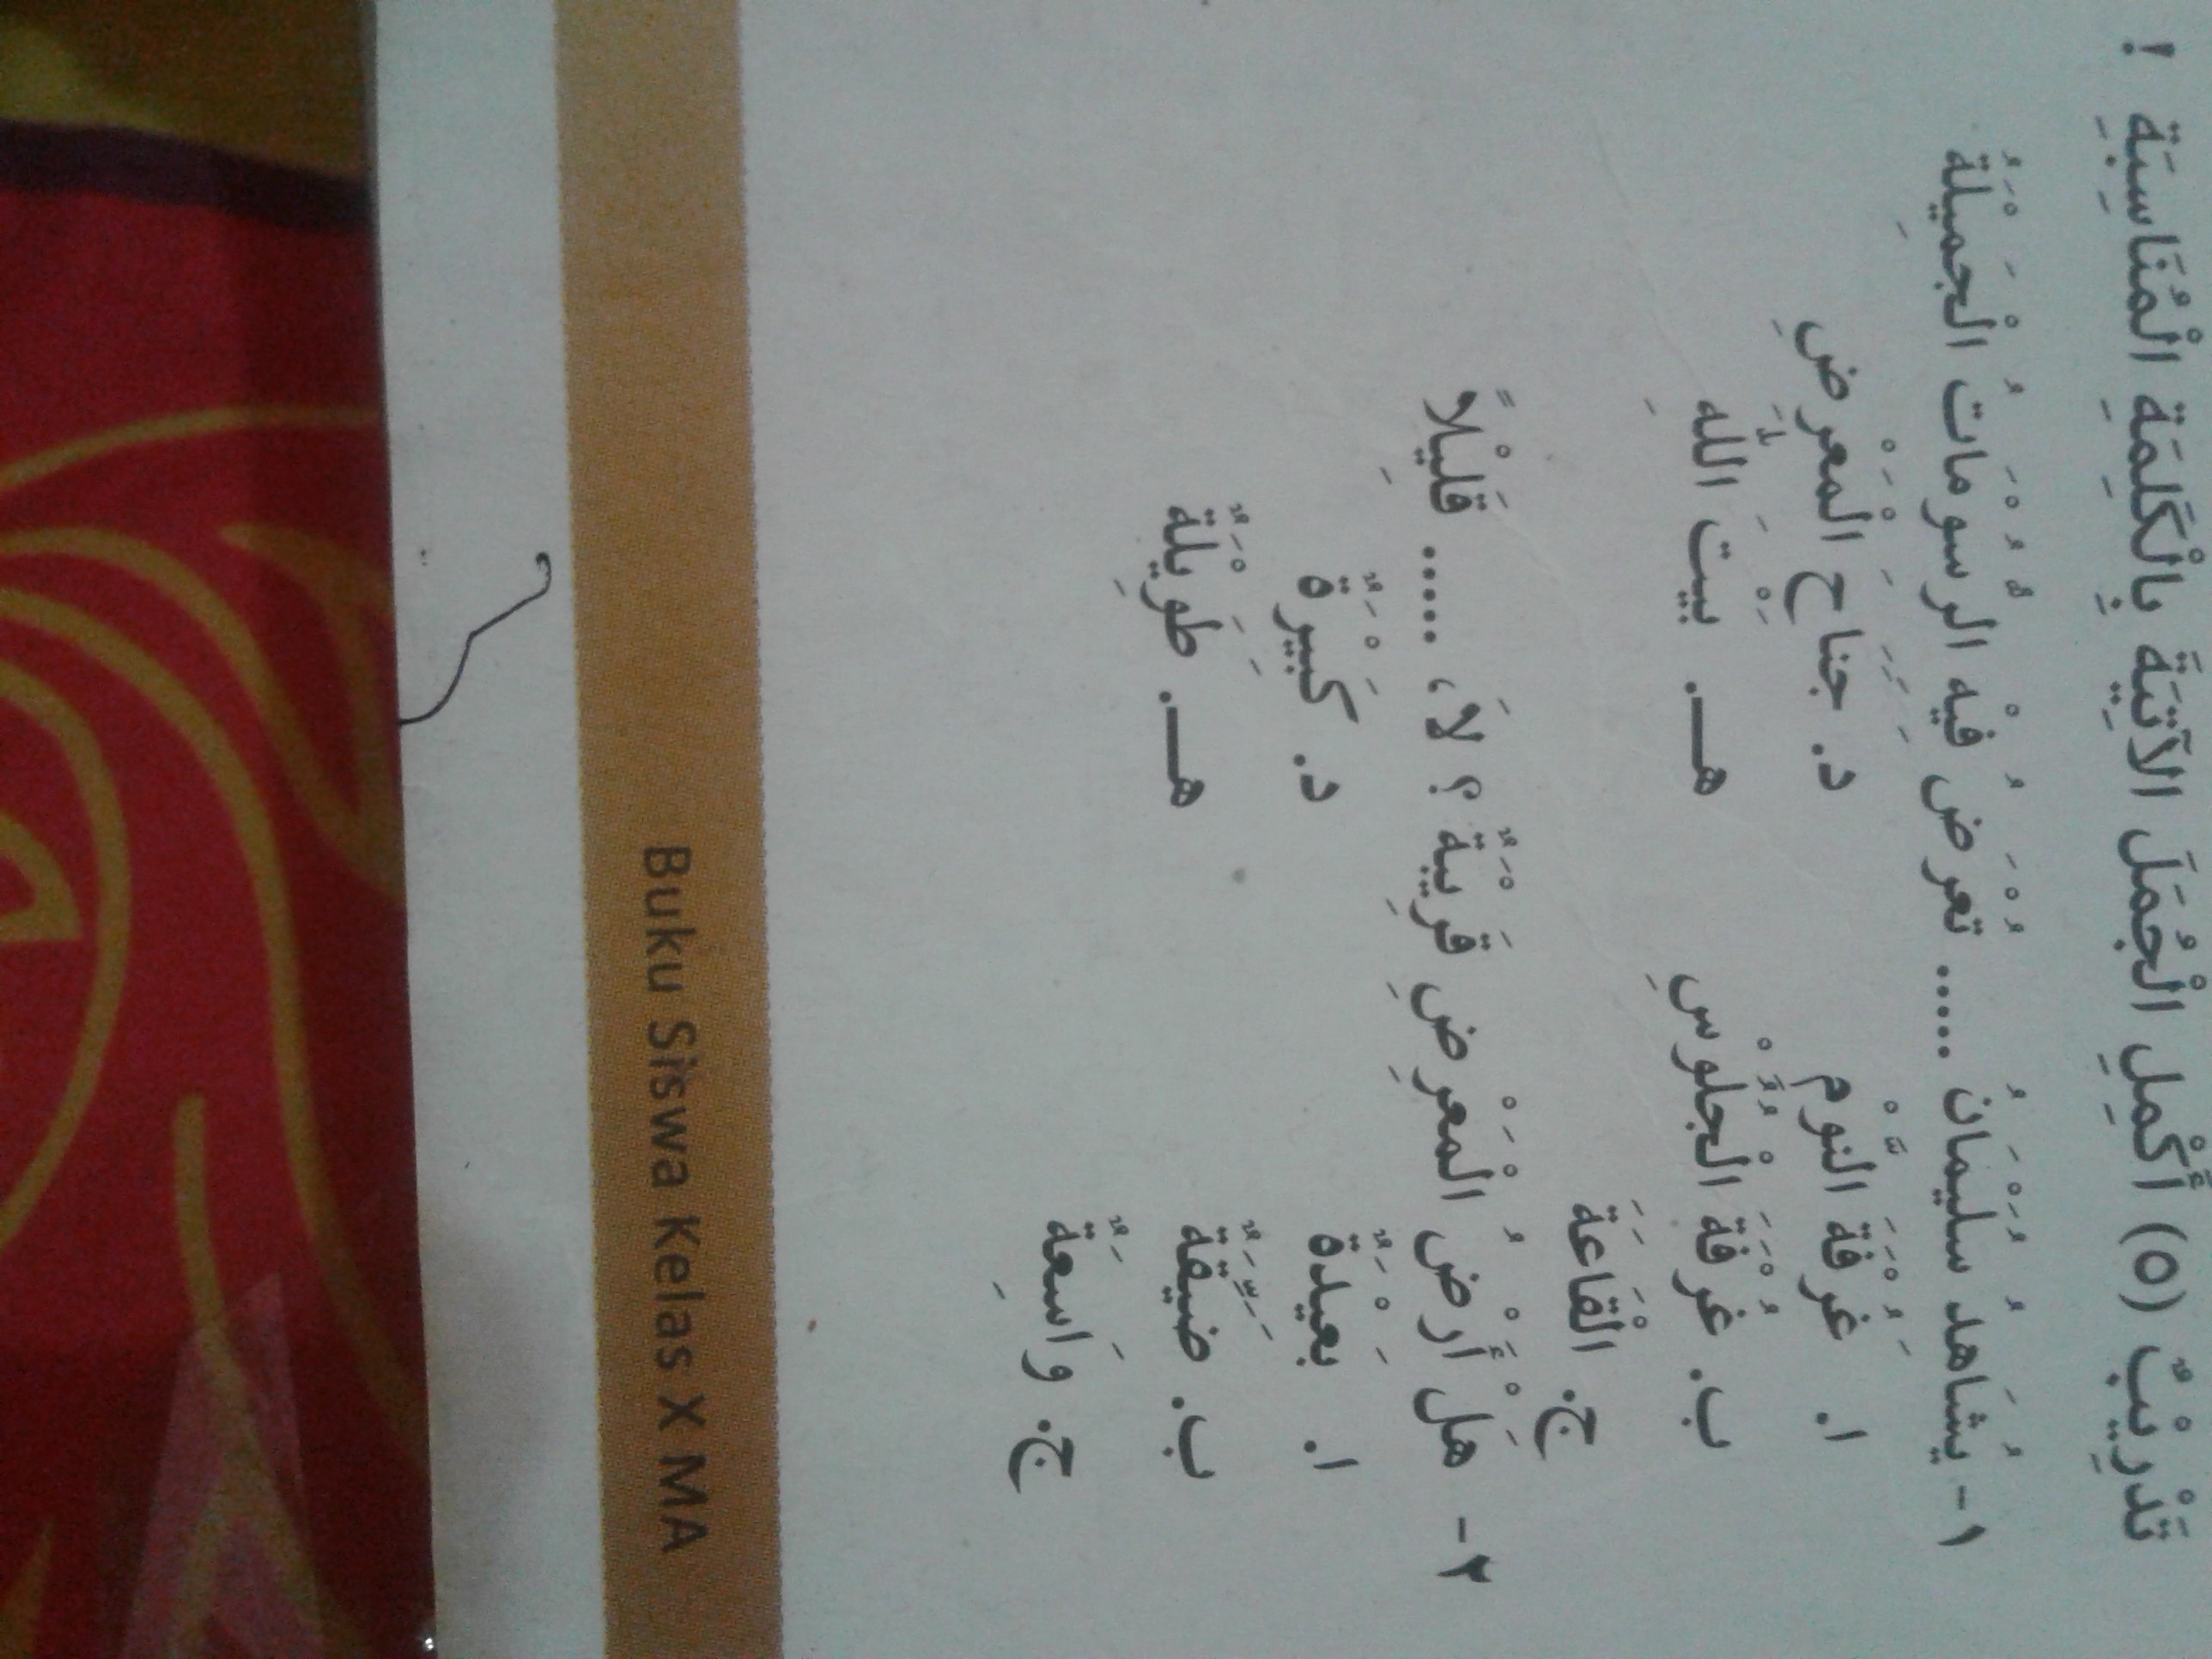 تَدْرِيْبٌ (٥) أَكْمِلِ الْجُمَلَ الآتِيَةَ بِالْكَلِمَةِ الْمُنَاسِبَةِ !
١- يُشَاهِدُ سُلَيْمَانُ ..... تُعْرَضُ فِيْهِ الرُّسُوْمَاتُ الْجَمِيْلَةُ
ا. غُرْفَةَ النَّوْمِ
د. جَنَاحَ الْمَعْرِضِ
ب. غُرْفَةَ الْجُلُوْسِ
هـ. بَيْتَ اللهِ
ج. الْقَاعَةَ
٢- هَلْ أَرْضُ الْمَعْرِضِ قَرِيْبَةٌ ؟ لَا، ..... قَلِيْلاً
ا. بَعِيْدَةٌ
د. كَبِيْرَةٌ
ب. ضَيِّقَةٌ
هـ. طَوِيْلَةٌ
ج. وَاسِعَةٌ
Buku Siswa Kelas X MA